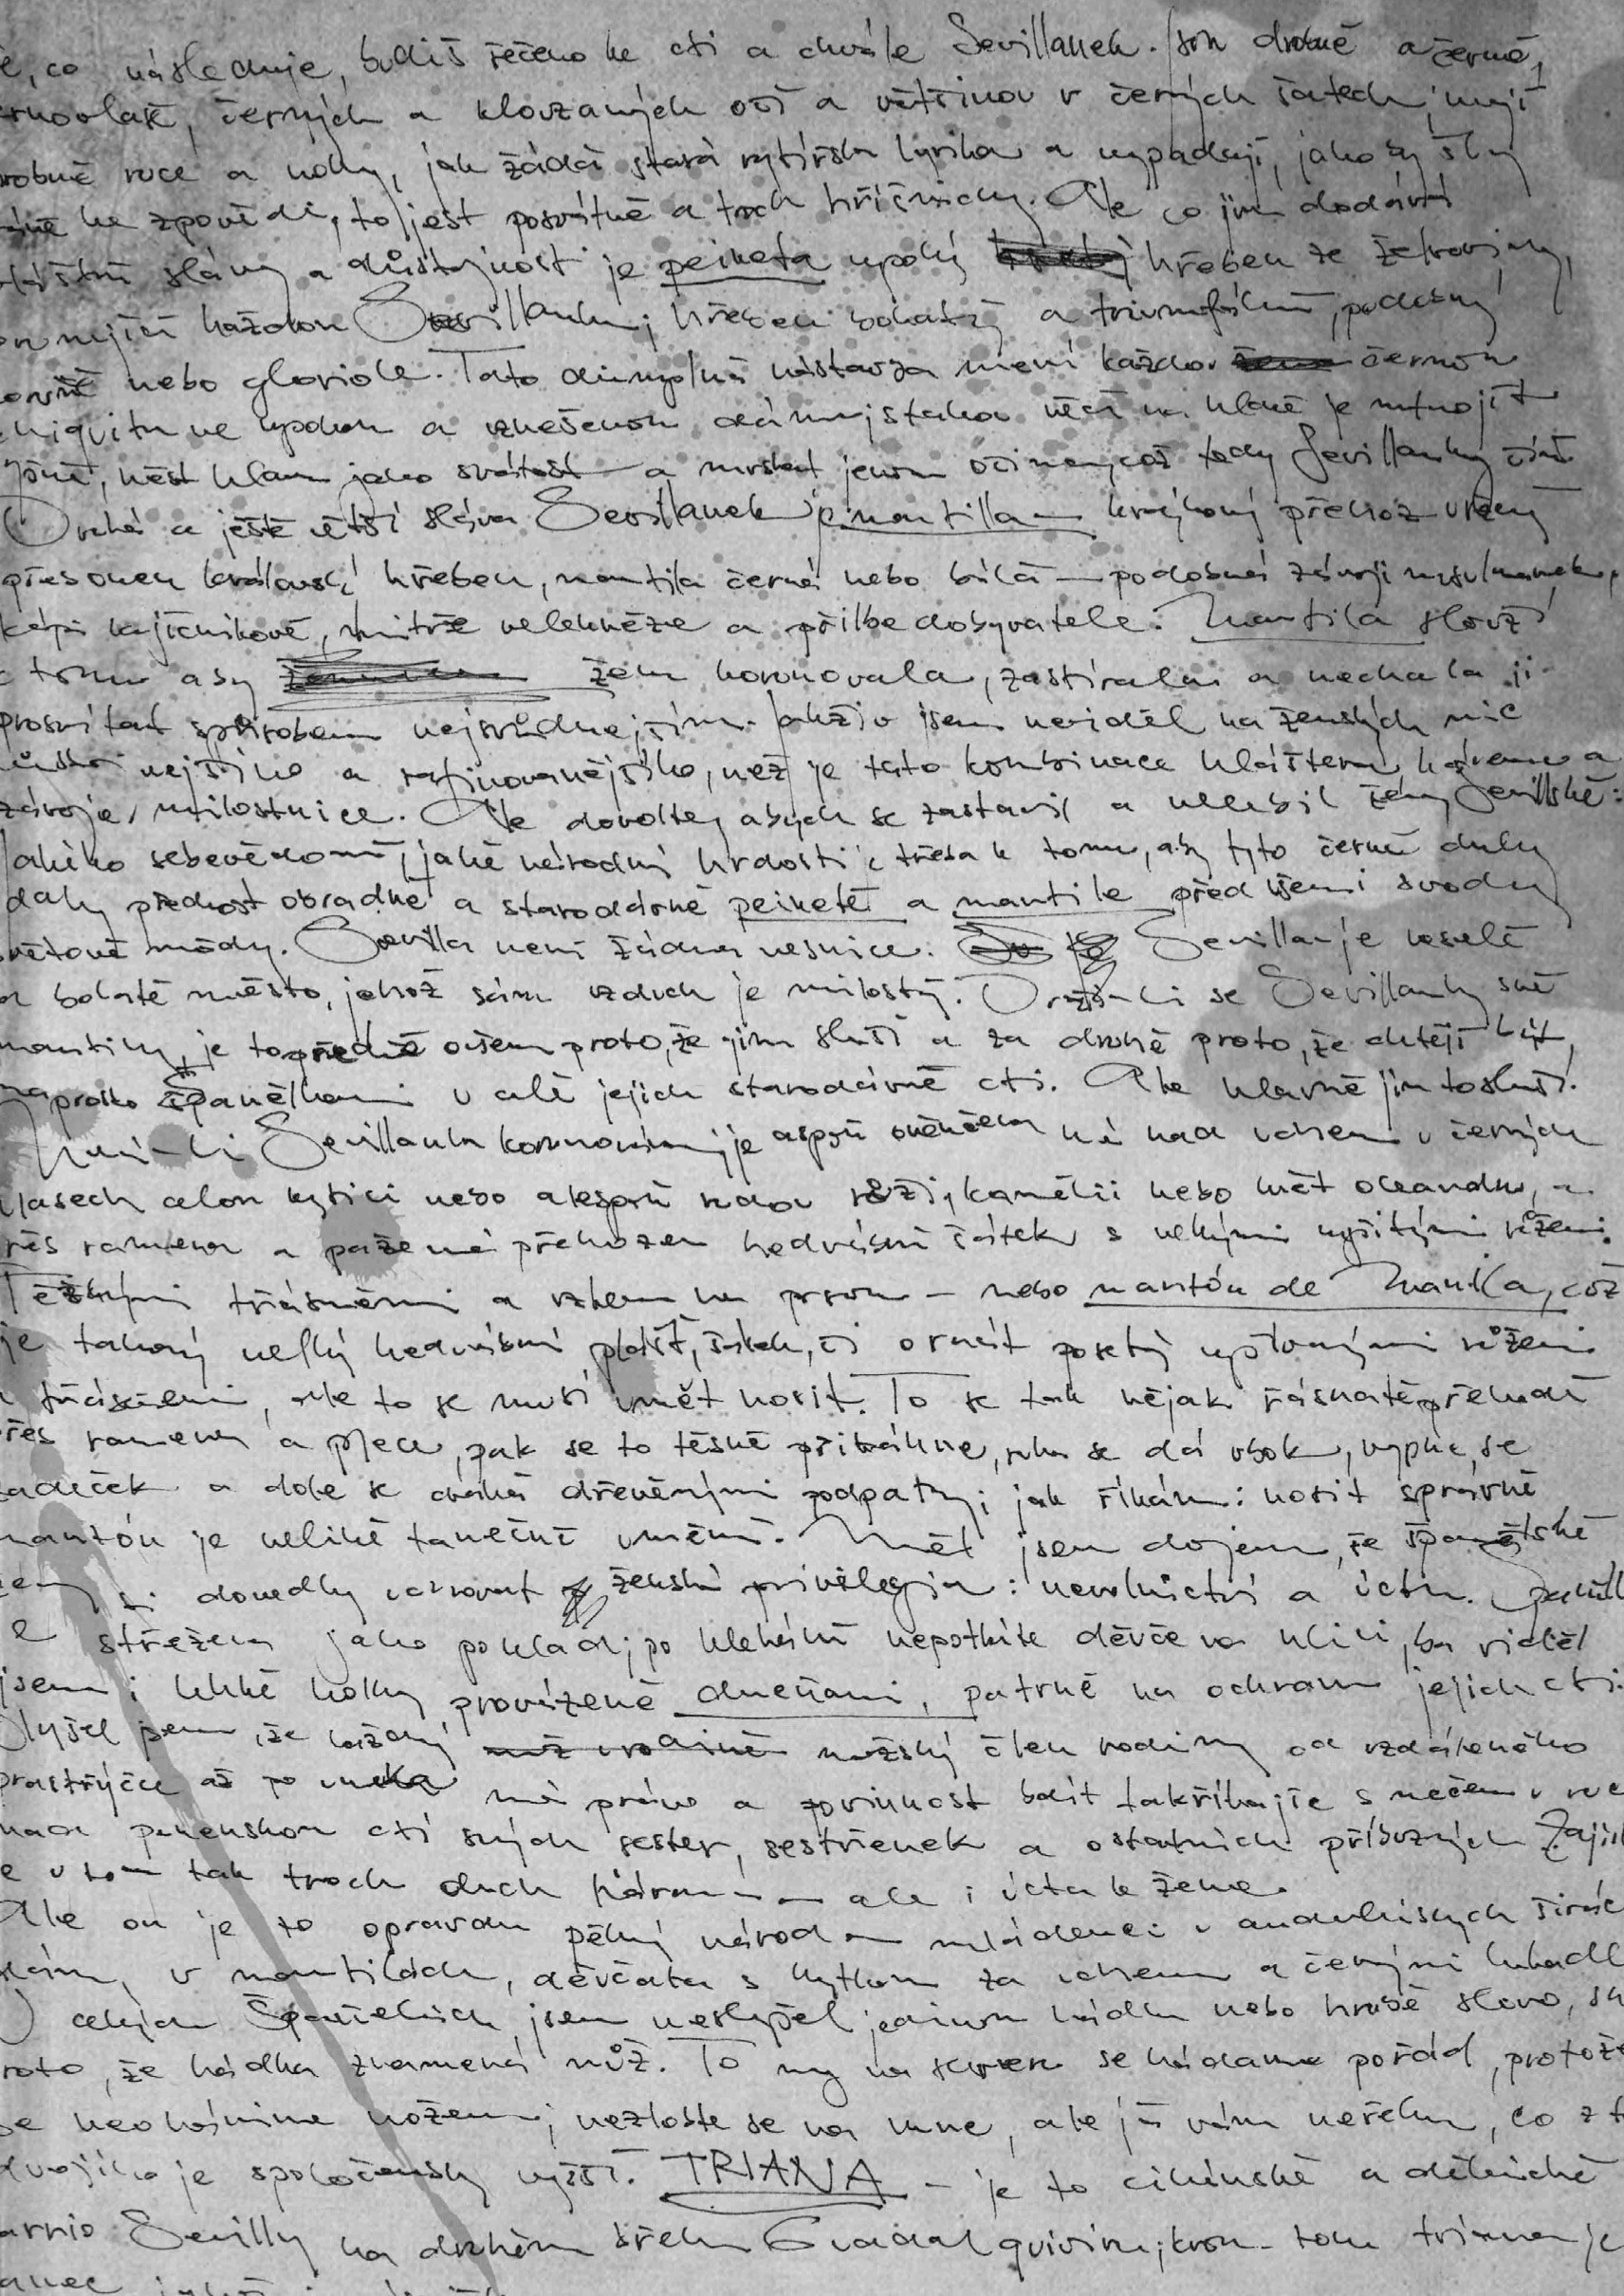 e, co následuje, budiž řečeno ke cti a chvále Sevillanek. Jsou drobné a černé,
rnovlasé, černých a klouzavých očí a většinou v černých šatech; mají
robné ruce a nohy, jak žádá stará rytířská lyrika a vypadají, jako by šly
ke zpovědi, to jest posvátně a troch hříšnicky. Ale co jim dodává
slávy a důstojnosti je peineta vysoký hřeben ze želvoviny,
každou Sevillanku; hřeben bohatý a triumfální, podobný
nebo gloriole. Tato důmyslná nástavba mění každou černou
chiquitu ve vysokou a vznešenou dámu; s takovou věcí na hlavě je nutno jít
pyšně, nést hlavu jako svátost a mrskat jenom očima, což tedy Sevillanky činí.
Druhá a ještě větší sláva Sevillanek je mantilla – krajkový přehoz vržený
přes onen královský hřeben, mantila černá nebo bílá – podobná závoji musulmanek,
kápi kajícníkově, mitře velekněze a přilbe dobyvatele. Mantila slouží
k tomu aby ženu korunovala, zastírala a nechala ji
prosvítat způsobem nejsvůdnejším. Jakživ jsem neviděl na ženských nic
a rafinovanějšího, než je tato kombinace kláštera, harému a
závoje milostnice. Ale dovolte, abych se zastavil a velebil ženy Sevillské:
Jakého sebevědomí, jaké národní hrdosti je třeba k tomu, aby tyto černé
daly přednost obřadné a starodávné peinetě a mantile před všemi svody
světové módy. Sevilla není žádná vesnice. Sevilla je veselé
a bohaté město, jehož sám vzduch je milostný. Drží-li se Sevillanky své
mantily, je to předně ovšem proto, že jim sluší a za druhé proto, že chtějí být
naprosto Španělkami v celé jejich starodávné cti. Ale hlavně jim to sluší.
Není-li Sevillanka korunována, je aspoň ověnčena má nad uchem v černých
vlasech celou kytici nebo alespoň rudou růži, kamélii nebo květ oleandru, a
přes ramena a paže má přehozen hedvábný šátek s velkými vyšitými růžemi
Těžkými třásněmi a uzlem na prsou – nebo mantón de Manila, což
je takový velký hedvábný plášť, šátek, či ornát posetý vyšívanými růžemi
a třásněmi, ale to se musí umět nosit. To se tak nějak řásnatě přehodí
přes ramena a plece, pak se to těsně přitáhne, ruka se dá v bok, vypne se
zadeček a dole se dřevěnými podpatky; jak říkám: nosit správně
mantón je veliké taneční umění. Měl jsem dojem, že španělské
ženy si dovedly uchovat ženská privilegia: nevolnictví a úctu.
e střežena jako poklad; po klekání nepotkáte děvče na ulici, ba viděl
jsem i lehké holky provázené dueňami, patrně na ochranu jejich cti.
Slyšel jsem, že každý mužský člen rodiny od vzdáleného
prastrýce až po vnuka má právo a povinnost bdít takříkajíc s mečem v ruce
nad panenskou ctí svých sester, sestřenek a ostatních příbuzných.
e v tom tak troch duch harému – ale i úcta k ženě.
Ale on je to opravdu pěkný národ – mládenci v andaluských širác
v mantilách, děvčata s kytkou za uchem a černými
V celých Španělích jsem neslyšel jedinou hádku nebo hrubé slovo, sn
proto, že hádka znamená nůž. To my na severu se hádáme pořád, protože
se neoháníme nožem; nezlobte se na mne, ale já vám neřeknu, co z t
dvojího je společensky vyšší. TRIANA – je to cikánské a dělnické
barrio Sevilly na druhém břehu Guadalquiviru; krom toho triana je